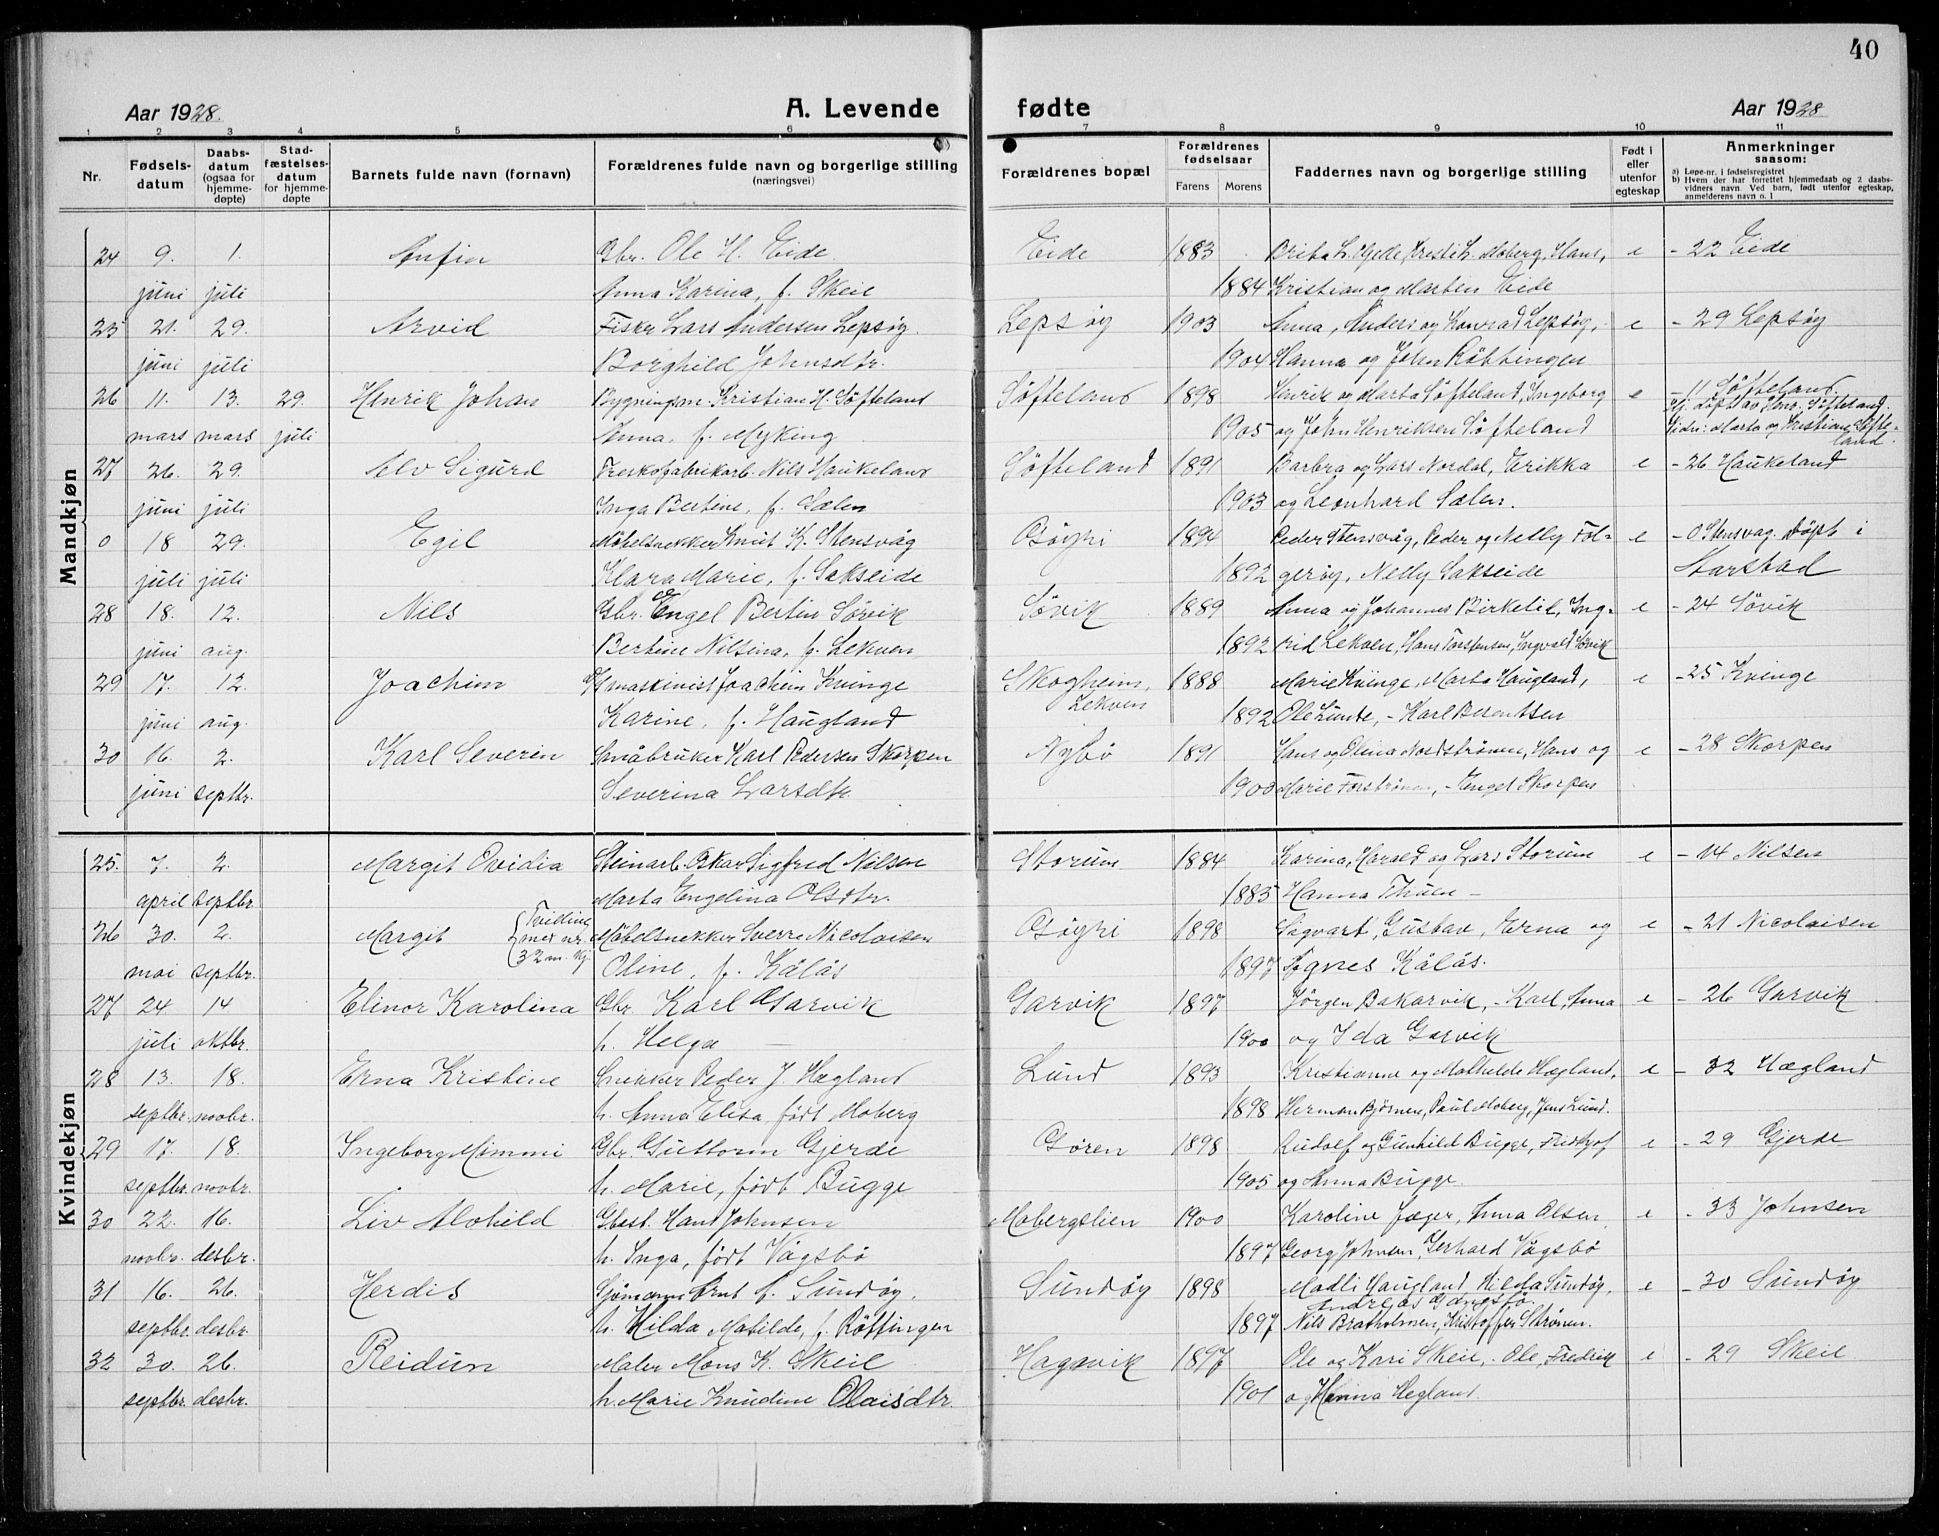 40
Aar 1928.
A. Levende
fødte
Aar 1928
1 2 3 4 5 6 7 8 9 10 11
Nr.
Fødsels-
datum
Daabs-
datum
(ogsaa for
hjemme-
døpte)
Stad-
fæstelses-
datum
for hjemme-
døpte
Barnets fulde navn (fornavn)
Forældrenes fulde navn og borgerlige stilling
(næringsvei)
Forældrenes bopæl
Forældrenes
fødselsaar
Farens Morens
Faddernes navn og borgerlige stilling
Født i
eller
utenfor
egteskap
Anmerkninger
saasom:
a) Løpe-nr. i fødselsregistret
b) Hvem der har forrettet hjemmedaab og 2 daabs-
vidners navn. Ved barn, født utenfor egteskap,
anmelderens navn o. l
Mandkjøn
24 9. 1. Anfin Gbr. Ole H. Eide Eide 1883 Brita L. Gjede, Kresti L. Moberg, Hans, e - 22 Eide
juni juli Anna Karina, f. Skeie 1884 Kristian og Marten Eide
25 21. 29. Arvid Fisker Lars Andersen Lepsøy Lepsøy 1903 Anna, Anders og Konrad Lepsøy, e - 29 Lepsøy
juni juli Borghild Johnsdtr. 1904 Hanna og John Røttingen
26 11. 13. 29. Henrik Johan Bygningsm. Kristian H. Søfteland Søfteland 1898 Henrik og Marta Søfteland, Ingeborg e - 11 Søfteland.
mars mars juli Anna, f. Myking 1905 og John Henriksen Søfteland Hj. døpt av Henr. Søfteland.
Vidn: Marta og Kristian Søfte-
land.
27 26. 29. Alv Sigurd Treskofabrikarb. Nils Haukeland Søfteland 1891 Barbra og Lars Nordal, Erikka e - 26 Haukeland
juni juli Inga Bertine, f. Sælen 1903 og Leonhard Sælen.
0 18 29. Egil Møbelsnekker Knut K. Stensvåg Osøyri 1894 Peder Stensvåg, Peder og Nelly Føl- e - 0 Stensvag. Døpt i
juli juli Klara Marie, f. Sakseide 1892 gerøy, Nelly Sakseide Harstad
28 18. 12. Nils Gbr. Engel Bertin Søvik Søvik 1889 Anna og Johannes Birkelil, Ing- e - 24 Søvik
juni aug. Bertine Nilsina, f. Lekven 1892 rid Lekven, Hans Torstensen, Ingvald Søvik
29 17. 12. Joachim maskinist Joachim Kvinge Skogheim, 1888 Marie Kvinge, Marta Haugland, e - 25 Kvinge
juni aug. Karine, f. Haugland Lekven 1892 Ole Lunde, - Karl Berentsen
30 16. 2. Karl Severin Småbruker Karl Pedersen Skorpen Nybø 1891 Hans og Olina Nordstrønen, Hans og e - 28 Skorpen
juni septbr. Severina Larsdtr. 1900 Marie Forstrønen, - Engel Skorpen
Kvindekjøn
25. 7. 2. Margit Ovidia Steinarb. Oskar Sigfred Nilsen Storum 1884 Karina, Harald og Lars Storum e - 14 Nilsen
april septbr Marta Engelina Olsdtr. 1885 Hanna Thuen -
26 30. 2. Margit {Tvilling Møbelsnekker Sverre Nicolaisen Osøyri 1898 Sigvart, Gustav, Erna og e - 21 Nicolaisen
mai septbr. med nr. 32 m. kj. Oline, f. Kålås 1897 Agnes Kålås.
27 24 14 Elinor Karolina Gbr. Karl Garvik Garvik 1897 Jørgen Bakarvik, - Karl, Anna e - 26 Garvik
juli oktbr. h. Helga — 1900 og Ida Garvik
28 13. 18. Erna Kristine Snekker Peder J. Hægland Lund 1893 Kristianne og Mathilde Hægland, e - 32 Hægland
septbr. novbr. h. Anna Elisa, født Moberg 1898 Herman Bjørnen, Paul Moberg, Jens Lund.
29 17. 18. Ingeborg Mimmi Gbr. Guttorm Gjerde Gåren 1898 Rudolf og Gunhild Bugge, Fridtjof e - 29 Gjerde
septbr. novbr. h. Marie, født Bugge 1905 og Anna Bugge.
30 22. 16. Liv Alvhild Gbest. Hans Johnsen Mobergslien 1900 Karoline Jæger, Anna Olsen, e - 33 Johnsen
novbr. desbr. h. Inga, født Vågsbø 1897 Georg Johnsen, Gerhard Vågsbø
31 16. 26. Herdis Sjømann Arnt f. Sundøy. Sundøy 1898 Madli Haugland, Hilda Sundøy, e - 30 Sundøy
Andreas
septbr. desbr. h. Hilda Matilde, f. Røttingen 1897 Nils Bratholmen, Kristoffer Strønen.
32 30. 26. Reidun Maler Mons K. Skeie Hagavik 1897 Ole og Kari Skeie, - Ole, Fredrik e - 29 Skeie
septbr desbr. h. Marie Knudine Olaisdtr. 1901 og Hanna Hegland.